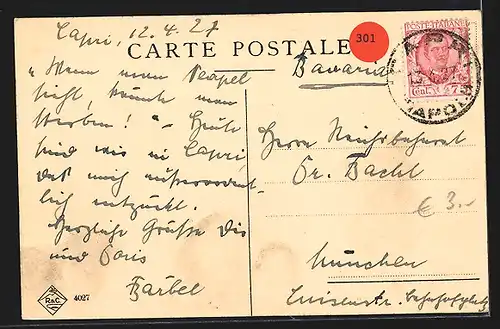 Capri, 12.4.27
CARTE POSTALE
301
Bavaria
POSTE ITALIANE
CAPRI
NAPOLI
"Wenn man Neapel
sieht, könnte man
sterben!" – Heute
sind wir in Capri,
das mich ausserordent-
lich entzückt.
Herzliche Grüße Dir
und Doris
Bärbel
Herrn
Dr. Bachl
München
Luisenstr.
€ 3.-
R&C.
4027